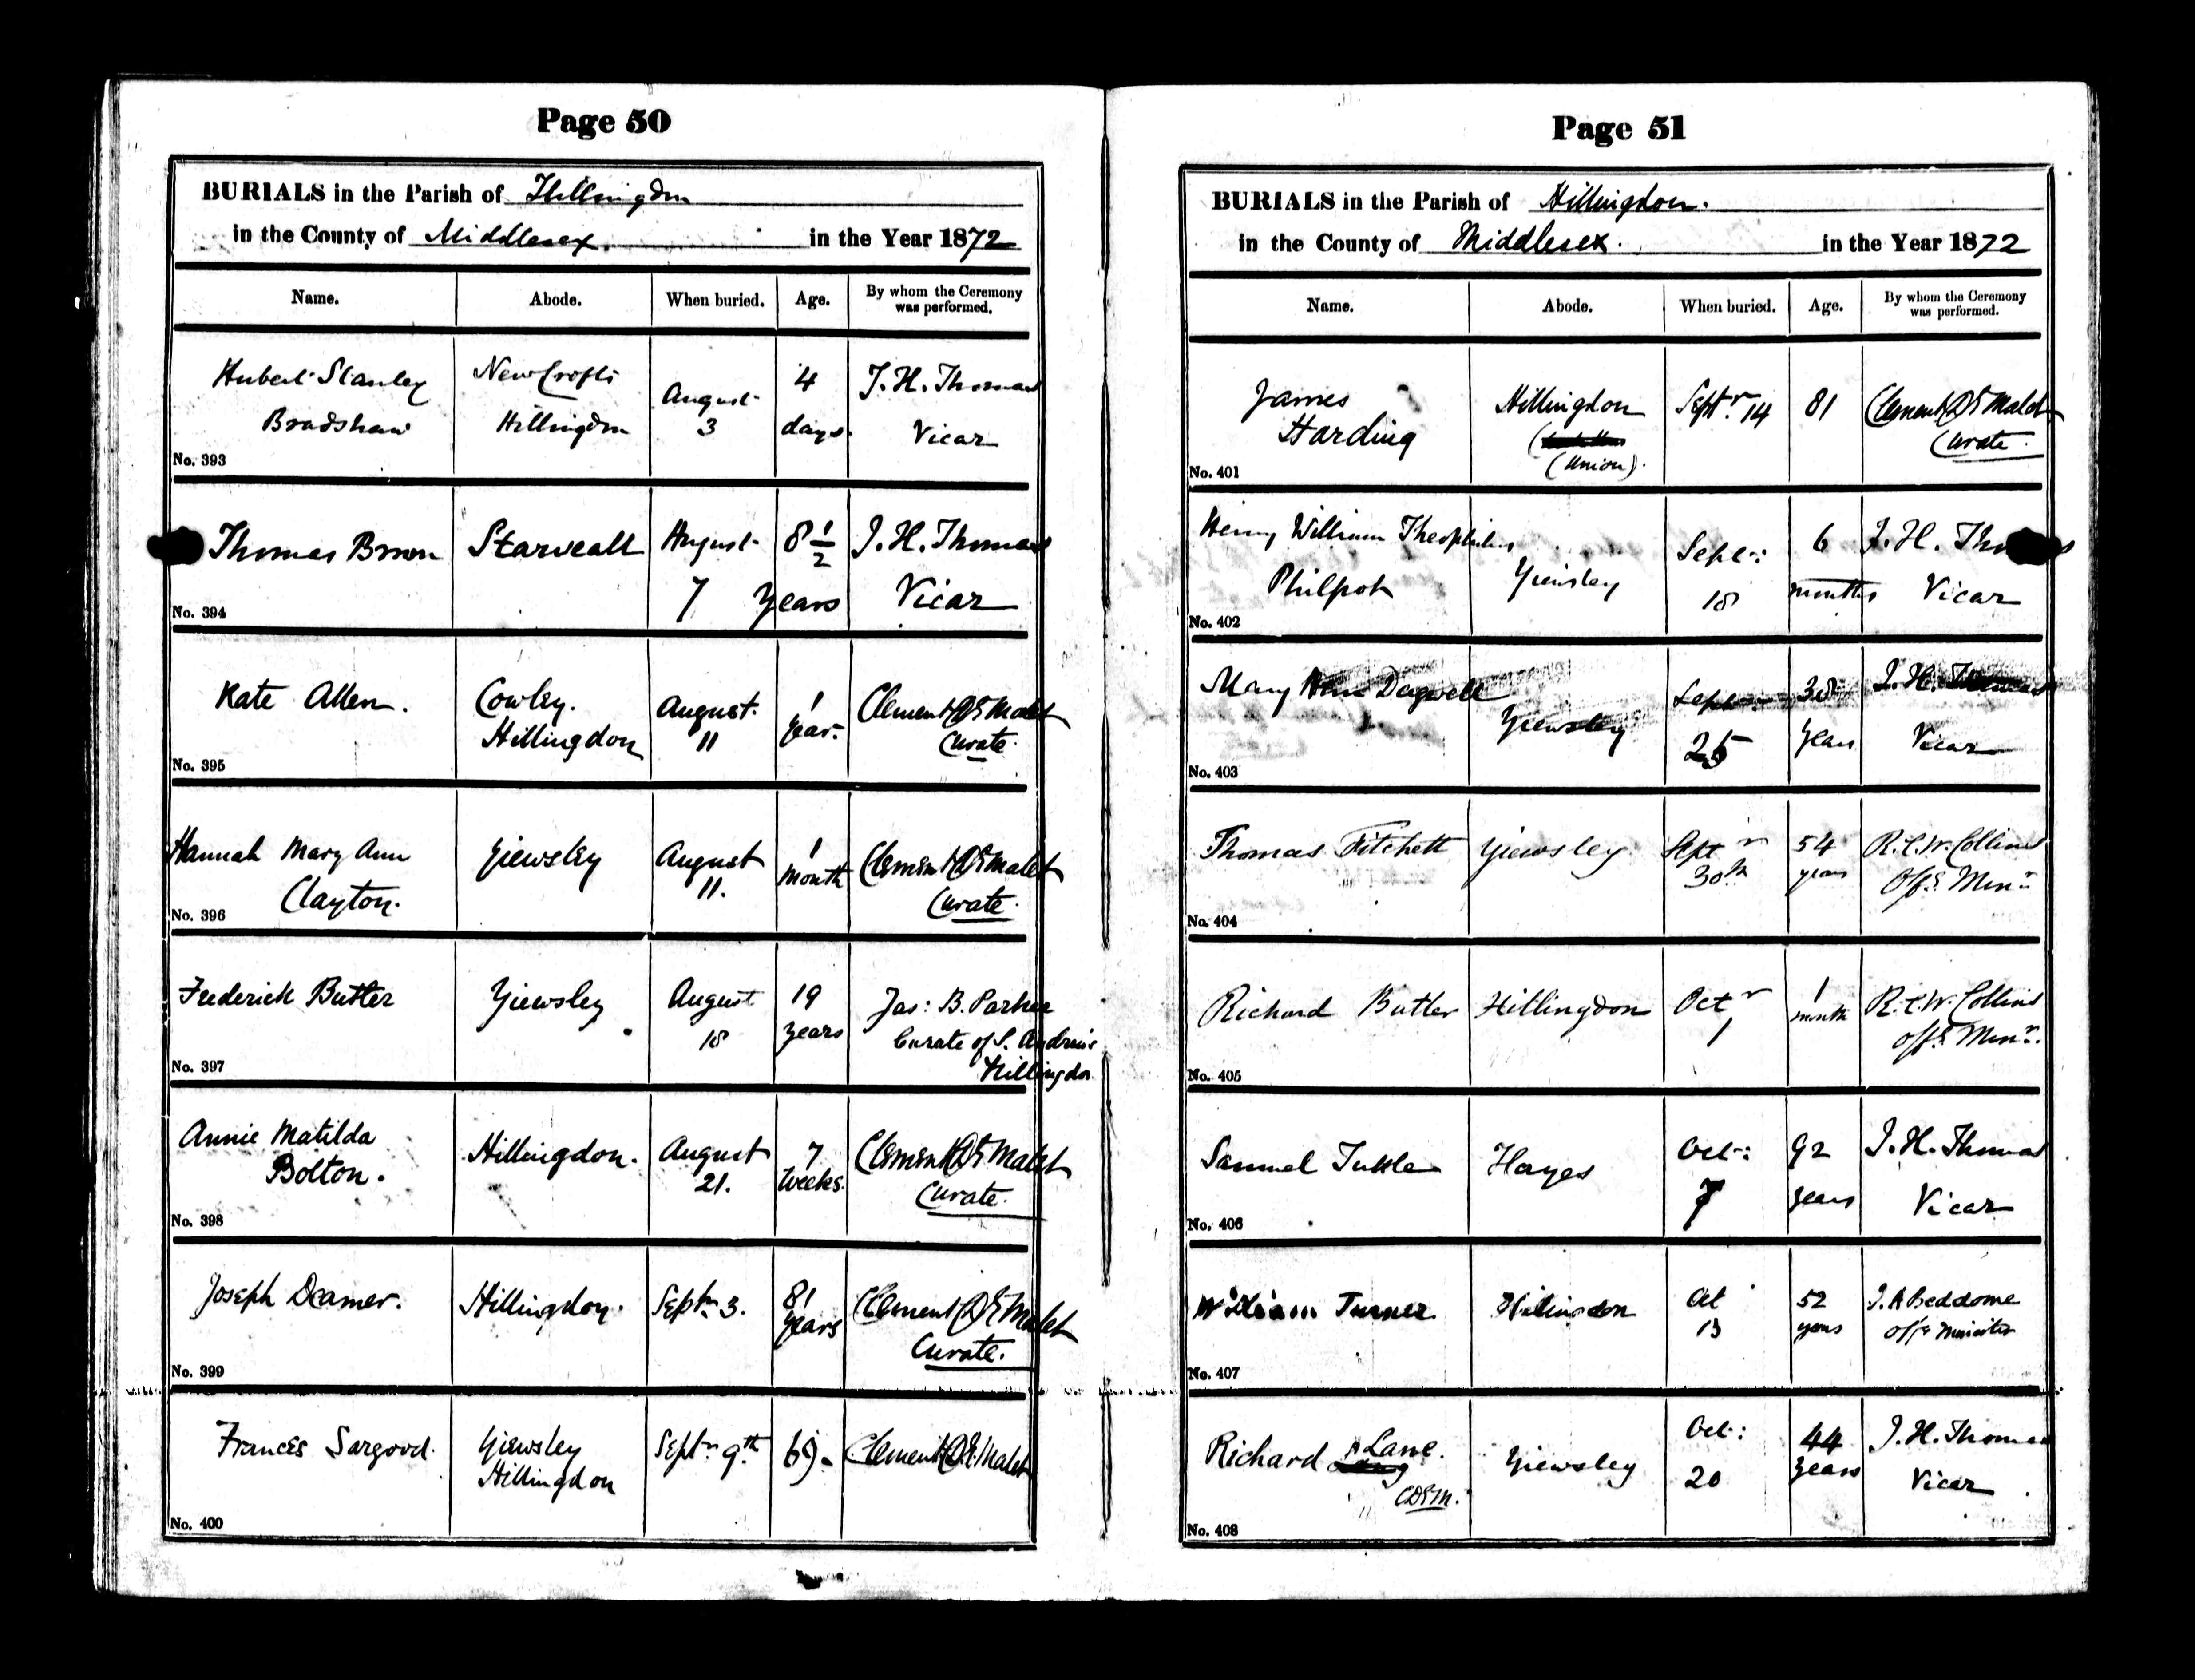 Page 50
BURIALS in the Parish of Hillingdon
in the County of Middlesex. in the Year 1872
Name. Abode. When buried. Age. By whom the Ceremony was performed.
Hubert Stanley New Crofts August 4 J. H. Thomas
Bradshaw Hillingdon 3 days. Vicar
No. 393
Thomas Brown Starveall August 8 1/2 J. H. Thomas
7 years Vicar
No. 394
Kate Allen. Cowley. August 1 Clement D E Malet
Hillingdon 11 year. Curate.
No. 395
Hannah Mary Ann Yiewsley August 1 Clement D E Malet
Clayton. 11. month Curate.
No. 396
Frederick Butler Yiewsley August 19 Jas: B. Parker
18 years Curate of S. Andrew's
Hillingdon
No. 397
Annie Matilda Hillingdon. August 7 Clement D E Malet
Bolton. 21. weeks. Curate.
No. 398
Joseph Deamer. Hillingdon. Septr 3. 81 Clement D E Malet
years Curate.
No. 399
Frances Sargood. Yiewsley Septr 9th 69. Clement D. E. Malet
Hillingdon
No. 400
Page 51
BURIALS in the Parish of Hillingdon.
in the County of Middlesex. in the Year 1872
Name. Abode. When buried. Age. By whom the Ceremony was performed.
James Hillingdon Septr 14 81 Clement D E Malet
Harding Curate
(Union).
No. 401
Henry William Theophilus Sept: 6 J. H. Thomas
Philpot Yiewsley 18 months Vicar
No. 402
Mary Ann Dagwell Sept: J. H. Thomas
Yiewsley 25 years Vicar
No. 403
Thomas Fitchett Yiewsley Septr 54 R. C. W. Collins
30th years Offg Minr
No. 404
Richard Butler Hillingdon Octr 1 R. C. W. Collins
1 month Offg Minr.
No. 405
Samuel Tuttle Hayes Oct: 92 J. H. Thomas
7 years Vicar
No. 406
William Turner Hillingdon Oct 52 J. A Beddome
13 years Offg Minister
No. 407
Richard Lane. Yiewsley Oct: 44 J. H. Thomas
CDEM. 20 years Vicar
No. 408